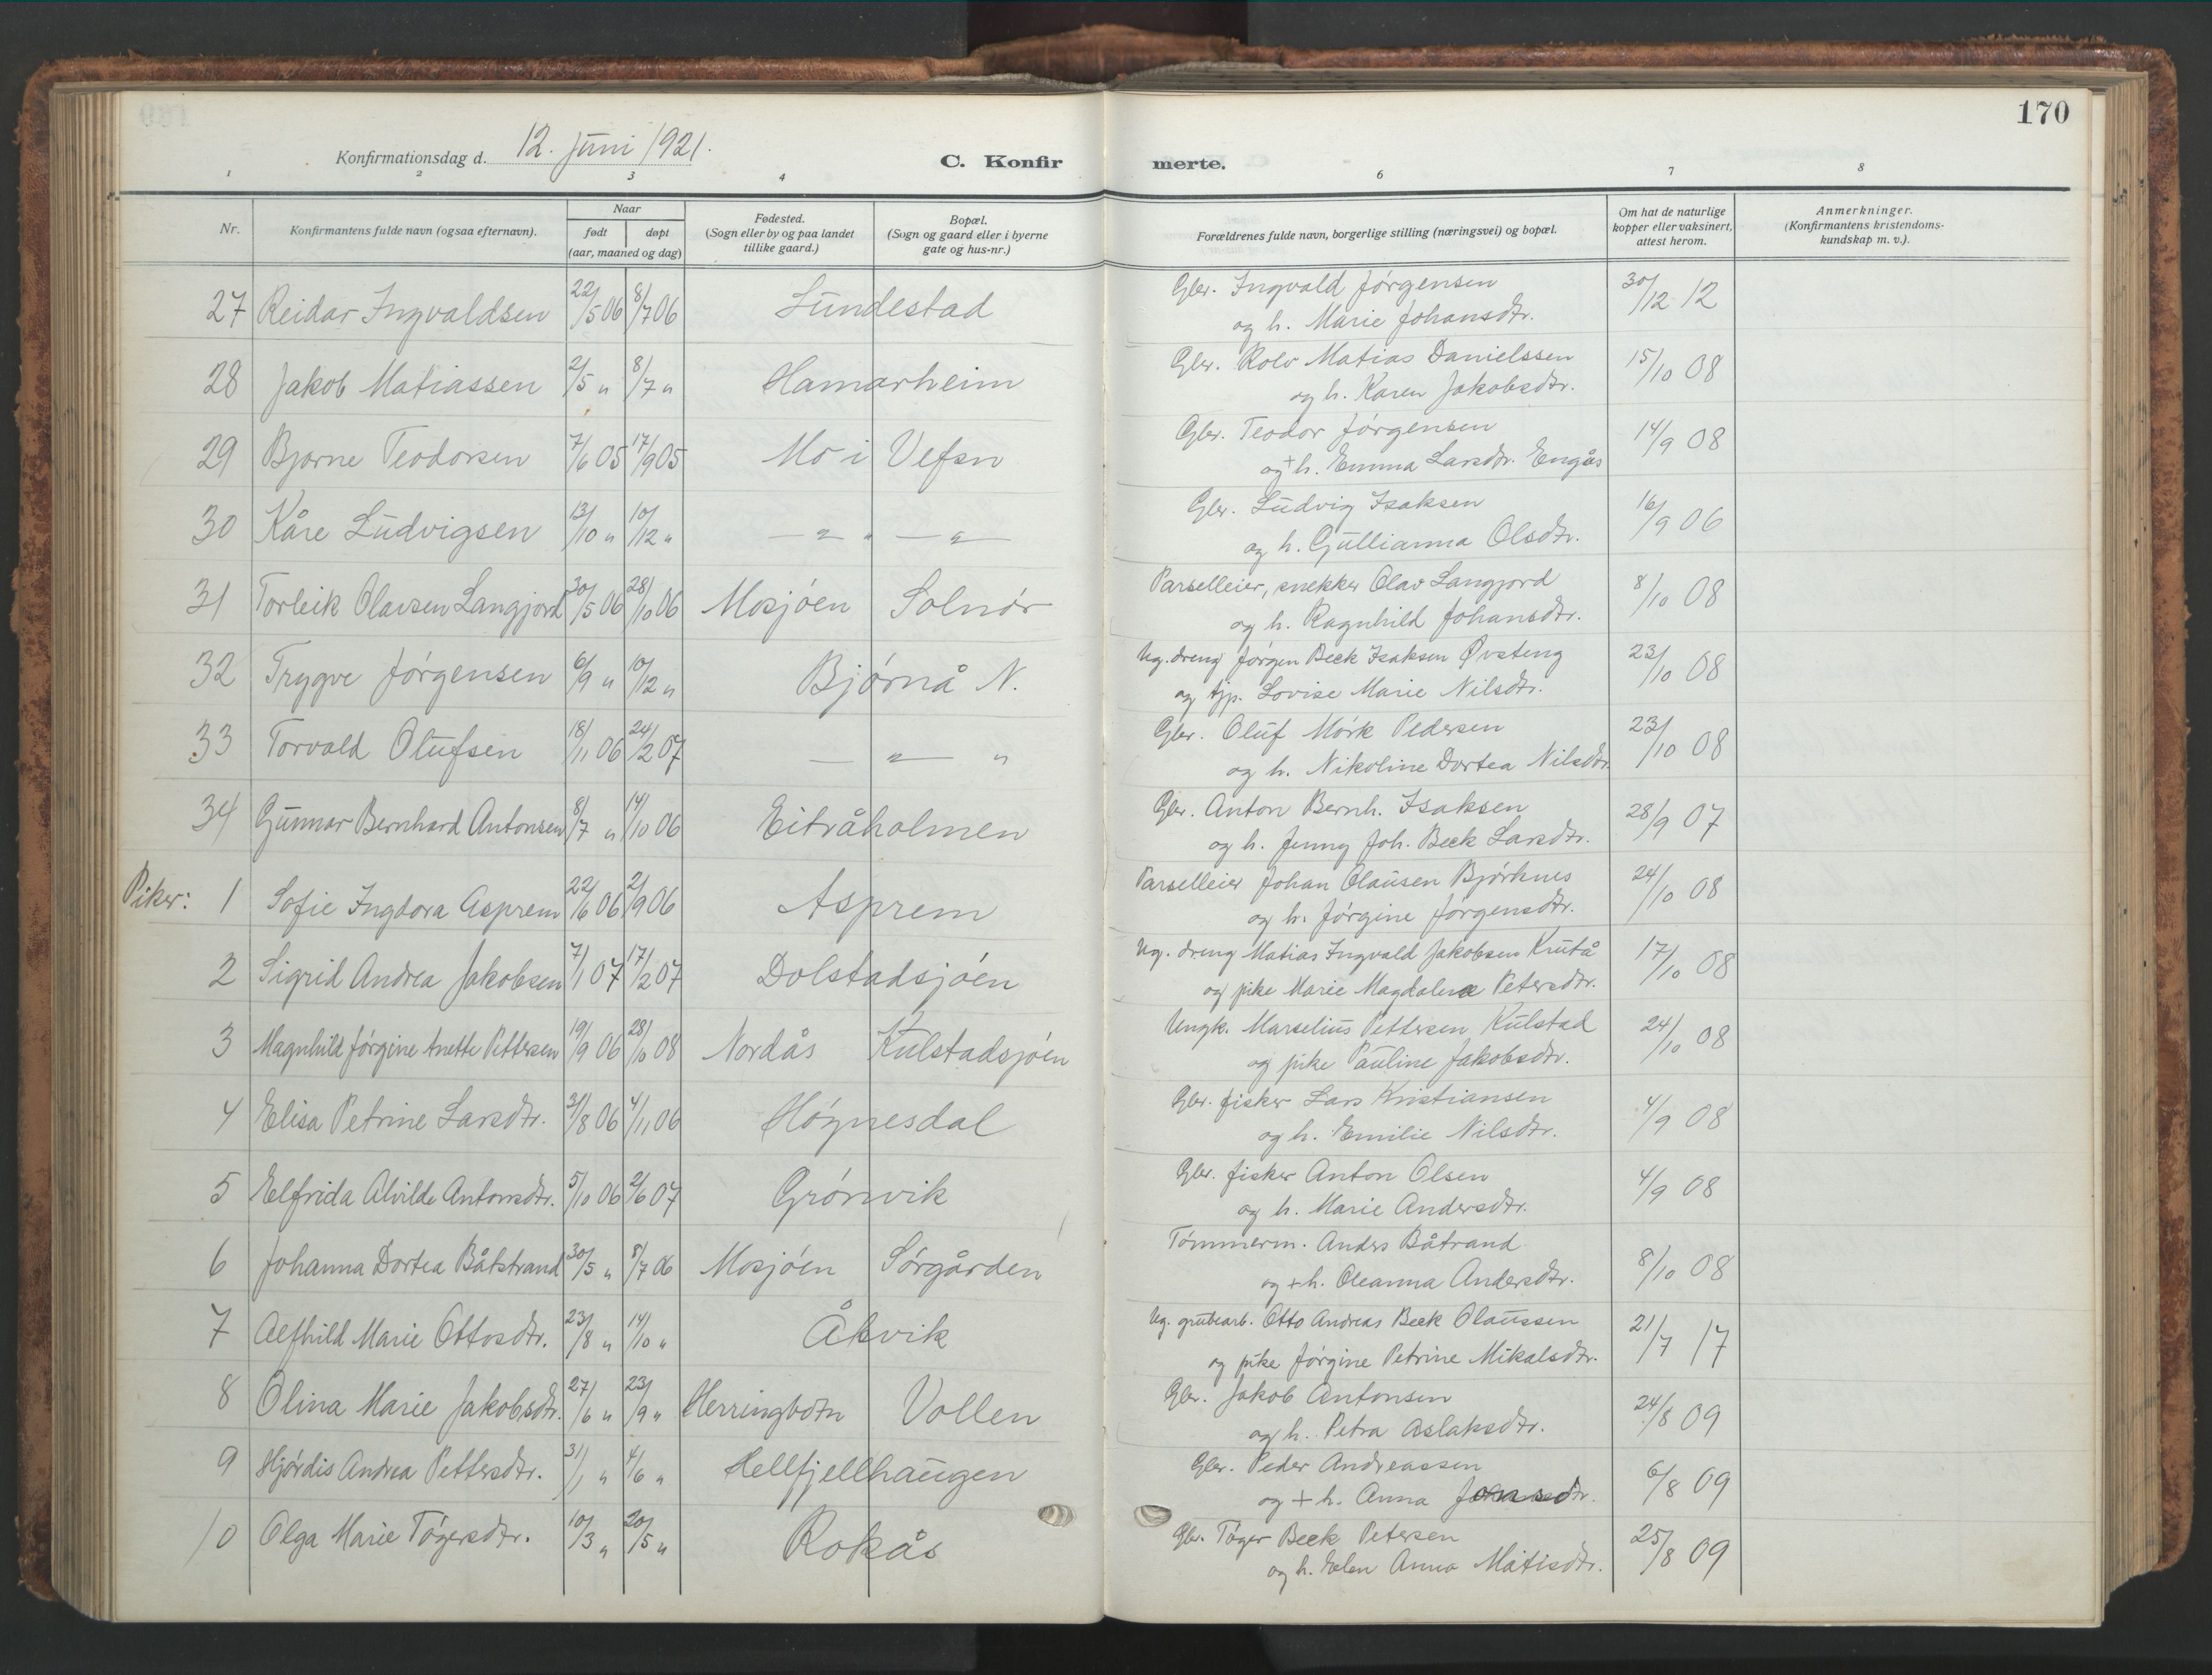 170
Konfirmationsdag d. 12. juni 1921.
C. Konfir merte.
1 2 3 4 6 7 8
Nr.
Konfirmantens fulde navn (ogsaa efternavn).
Naar
født døpt
(aar, maaned og dag)
Fødested.
(Sogn eller by og paa landet
tillike gaard.)
Bopæl.
(Sogn og gaard eller i byerne
gate og hus-nr.)
Forældrenes fulde navn, borgerlige stilling (næringsvei) og bopæl.
Om hat de naturlige
kopper eller vaksinert,
attest herom.
Anmerkninger.
(Konfirmantens kristendoms-
kundskap m. v.).
27 Reidar Ingvaldsen 22/5 06 8/7 06 Lundestad
Gbr. Ingvald Jørgensen 30/12 12
og h. Marie Johansdtr.
28 Jakob Matiassen 2/5 " 8/7 " Hamarheim
Gbr. Rolv Matias Danielssen 15/10 08
og h. Karen Jakobsdtr.
29 Bjarne Teodorsen 7/6 05 17/9 05 Mo i Vefsn
Gbr. Teodor Jørgensen 14/9 08
og + h. Emma Larsdtr. Engås
30 Kåre Ludvigsen 13/10 " 10/12 " — " — " —
Gbr. Ludvig Isaksen 16/9 06
og h. Gullianna Olsdtr.
31 Torleik Olavsen Langjord 30/5 06 28/10 06 Mosjøen Solnør
Parselleier, snekker Olav Langjord 8/10 08
og h. Ragnhild Johansdtr.
32 Trygve Jørgensen 6/9 " 10/12 " Bjørnå N.
Ug. dreng Jørgen Beck Isaksen Øvsteng 23/10 08
og tjp. Lovise Marie Nilsdtr.
33 Torvald Olufsen 18/11 06 24/2 07 — " — "
Gbr. Oluf Mørk Pedersen 23/10 08
og h. Nikoline Dortea Nilsdtr
34 Gunnar Bernhard Antonsen 8/7 " 14/10 06 Eitråholmen
Gbr. Anton Bernh. Isaksen 28/9 07
og h. Jenny Joh. Beck Larsdtr.
Piker: 1 Sofie Ingdora Asprem 22/6 06 2/9 06 Asprem
Parselleier Johan Olausen Bjørknes 24/10 08
og h. Jørgine Jørgensdtr.
2 Sigrid Andrea Jakobsen 7/1 07 17/2 07 Dolstadsjøen
Ug. dreng Matias Ingvald Jakobsen Krutå 17/10 08
og pike Marie Magdalena Petersdtr.
3 Magnhild Jørgine Anette Pettersen 19/9 06 28/10 08 Nordås Kulstadsjøen
Ungk. Marselius Pettersen Kulstad 24/10 08
og pike Pauline Jakobsdtr.
4 Elisa Petrine Larsdtr. 31/8 06 4/11 06 Høgnesdal
Gbr. fisker Lars Kristiansen 4/9 08
og h. Emilie Nilsdtr.
5 Elfrida Alvilde Antonsdtr. 5/10 06 2/6 07 Grønvik
Gbr. fisker Anton Olsen 4/9 08
og h. Marie Andersdtr.
6 Johanna Dortea Båtstrand 30/5 " 8/7 06 Mosjøen Sørgården
Tømmerm. Anders Båtrand 8/10 08
og + h. Oleanna Andersdtr.
7 Alfhild Marie Ottosdtr. 23/8 " 14/10 " Åkvik
Ug. grubearb. Otto Andreas Beck Olaussen 21/7 17
og pike Jørgine Petrine Mikalsdtr.
8 Olina Marie Jakobsdtr. 27/6 " 23/9 " Herringbotn Vollen
Gbr. Jakob Antonsen 24/8 09
og h. Petra Aslaksdtr.
9 Hjørdis Andrea Pettersdtr. 31/1 " 4/6 " Hellfjellhaugen
Gbr. Peder Andreassen 6/8 09
og + h. Anna Jonsdtr.
10 Olga Marie Tøgersdtr. 10/3 " 20/5 " Rokås
Gbr. Tøger Beck Petersen 25/8 09
og h. Elen Anna Matisdtr.